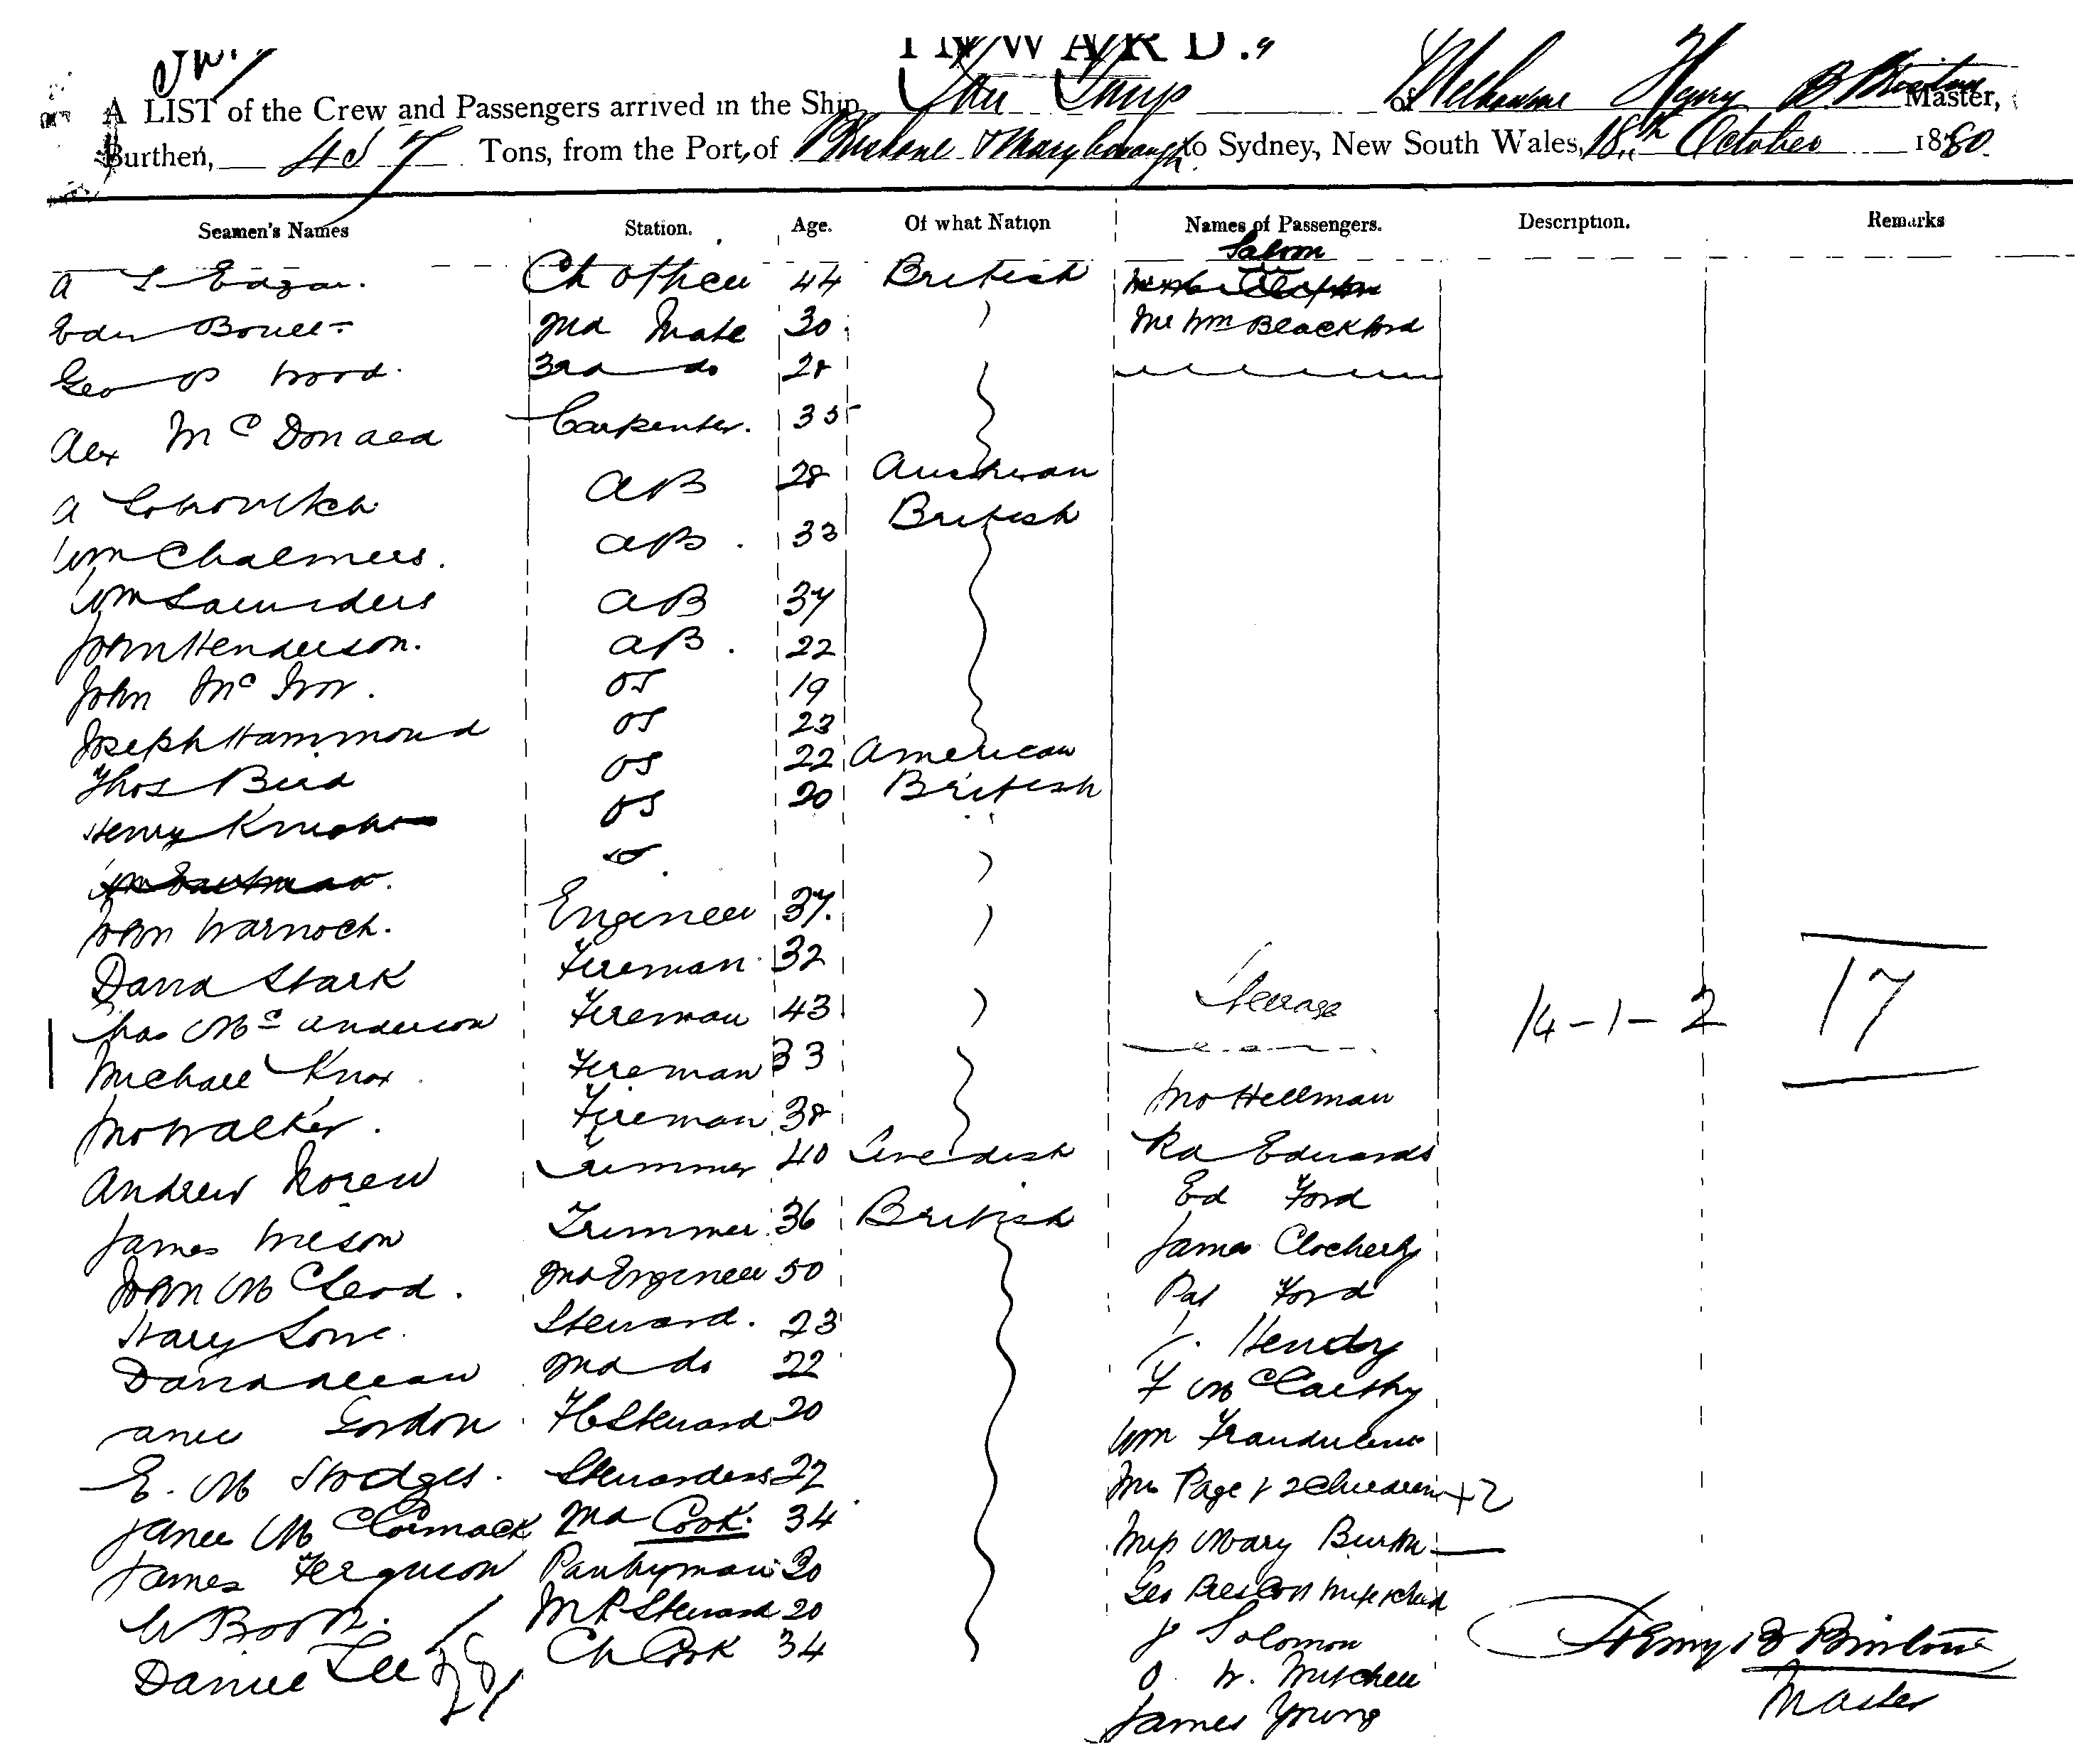 INWARD.
A LIST of the Crew and Passengers arrived in the Ship of Melbourne Henry B Master,
Burthen, 457 Tons, from the Port, of Brisbane & Maryborough to Sydney, New South Wales, 18th October 1880.
Seamen's Names Station. Age. Of what Nation Names of Passengers. Description. Remarks
Saloon
A L Edgar. Ch Officer 44 British
Bonell 2nd Mate 30 Mr Wm Blackford
Geo P Wood. 3rd do 28
Alex McDonald Carpenter. 35
A AB 28 Austrian
Wm Chalmers. AB. 33 British
Wm Saunders AB 37
John Henderson. AB. 22
John McIvor. OS 19
Joseph Hammond OS 23
Thos Bird OS 22 American
Henry Knight OS 20 British
John Warnock. Engineer 37.
David Stark Fireman 32
Chas McAnderson Fireman 43 Steerage 14-1-2 17
Michael Knox Fireman 33
Jno Walker. Fireman 38 Jno Hellman
Andrew Noren Trimmer 40 Swedish Rd Edwards
James Wilson Trimmer 36 British Ed Ford
John McLeod. 2nd Engineer 50 James Clocherty
Harry Lowe Steward. 23 Pat Ford
David Allan 2nd do 22 Hendry
Gordon FC Steward 20 F McCarthy
E. M Hodges. Stewardess 27 Wm
James McCormack 2nd Cook. 34 Mrs Page & 2 Children +2
James Ferguson Pantryman 20 Miss Mary Burton
W Booth. M R Steward 20 Geo Preston wife & child
Daniel Lee Ch Cook 34 J Solomon
28
O. W. Mitchell
James Young
Henry B
Master